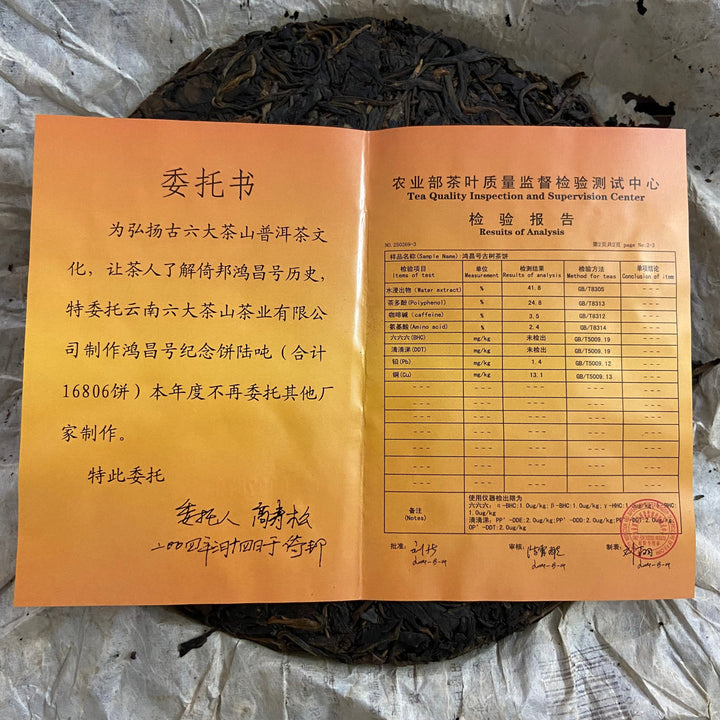 委托书
为弘扬古六大茶山普洱茶文
化，让茶人了解倚邦鸿昌号历史，
特委托云南六大茶山茶业有限公
司制作鸿昌号纪念饼陆吨（合计
16806饼）本年度不再委托其他厂
家制作。
特此委托
委托人 高寿松
农业部茶叶质量监督检验测试中心
Tea Quality Inspection and Supervision Center
检验报告
Results of Analysis
NO.250269-3 第2页共2页 page No.2-3
样品名称(Sample Name):鸿昌号古树茶饼
检验项目 单位 检测结果 检验方法 单项结论
Items of test Measurement Results of analysis Method for teas Conclusion of item
水浸出物 (Water extract) % 41.8 GB/T8305
茶多酚(Polyphenol) % 24.8 GB/T8313
咖啡碱 (caffeine) % 3.5 GB/T8312
氨基酸(Amino acid) % 2.4 GB/T8314
六六六(BHC) mg/kg 未检出 GB/T5009.19
滴滴涕(DDT) mg/kg 未检出 GB/T5009.19
铅(Pb) mg/kg 1.4 GB/T5009.12
铜(Cu) mg/kg 13.1 GB/T5009.13
备注
(Notes)
使用仪器检出限为
六六六: α-BHC:1.0ug/kg;β-BHC:1.0ug/kg;γ-BHC:1.0ug/kg;
1.0ug/kg
滴滴涕: PP'-DDE:2.0ug/kg;PP'-DDD:2.0ug/kg;PP'-DDT:2.0ug/kg
OP'-DDT:2.0ug/kg
批准: 审核: 制表: